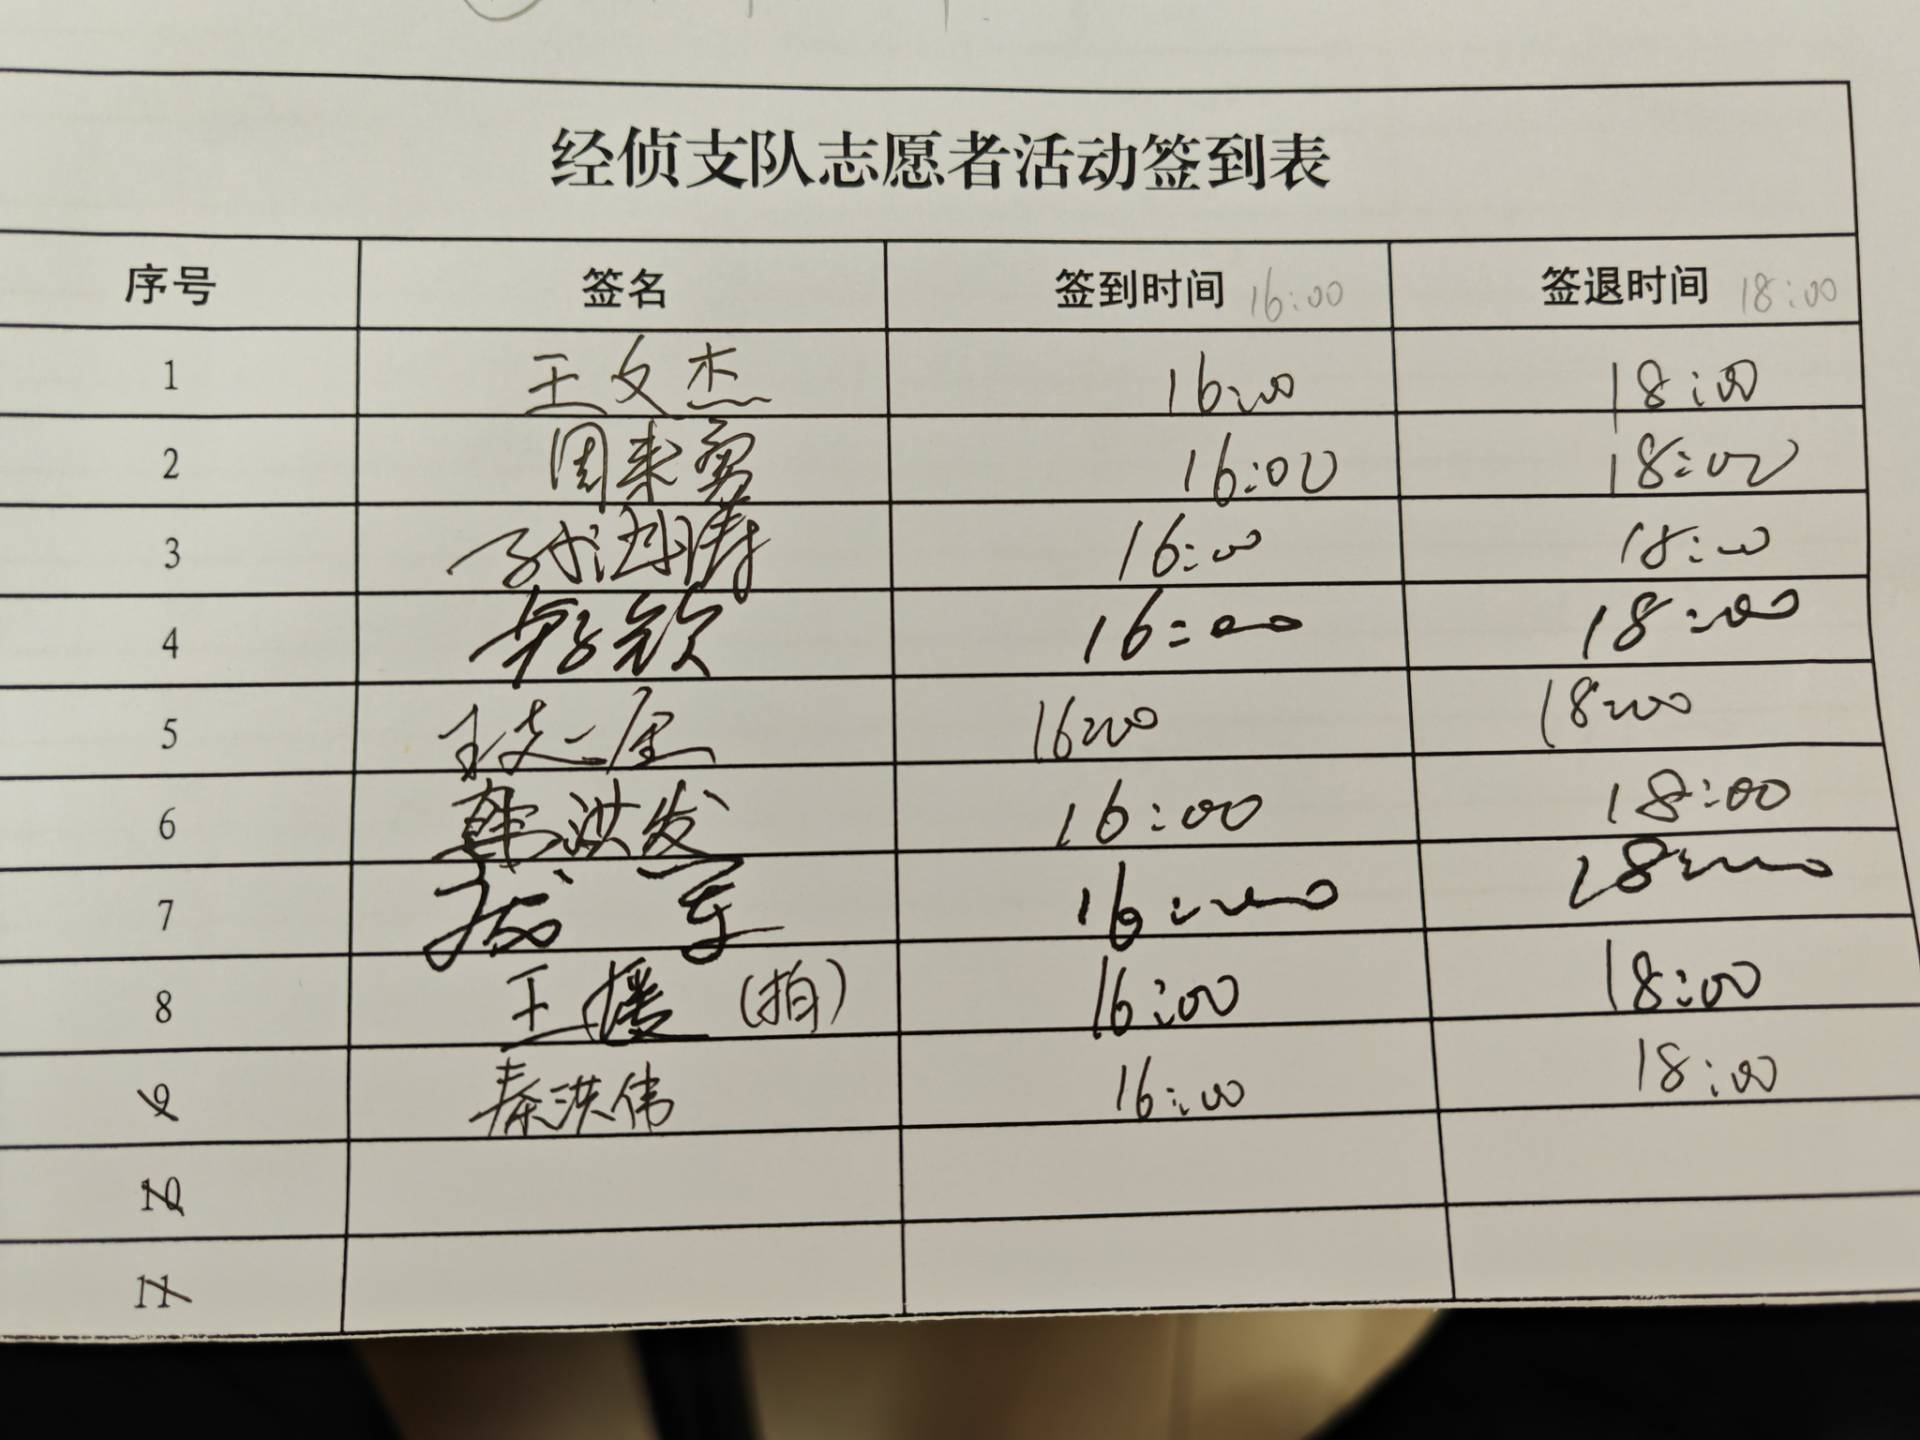 经侦支队志愿者活动签到表
序号 签名 签到时间 16:00 签退时间 18:00
1 王文杰 16:00 18:00
2 周来勇 16:00 18:00
3 16:00 18:00
4 16:00 18:00
5 16:00 18:00
6 韩洪发 16:00 18:00
7 16:00 18:00
8 王媛 (拍) 16:00 18:00
9 秦洪伟 16:00 18:00
10
11